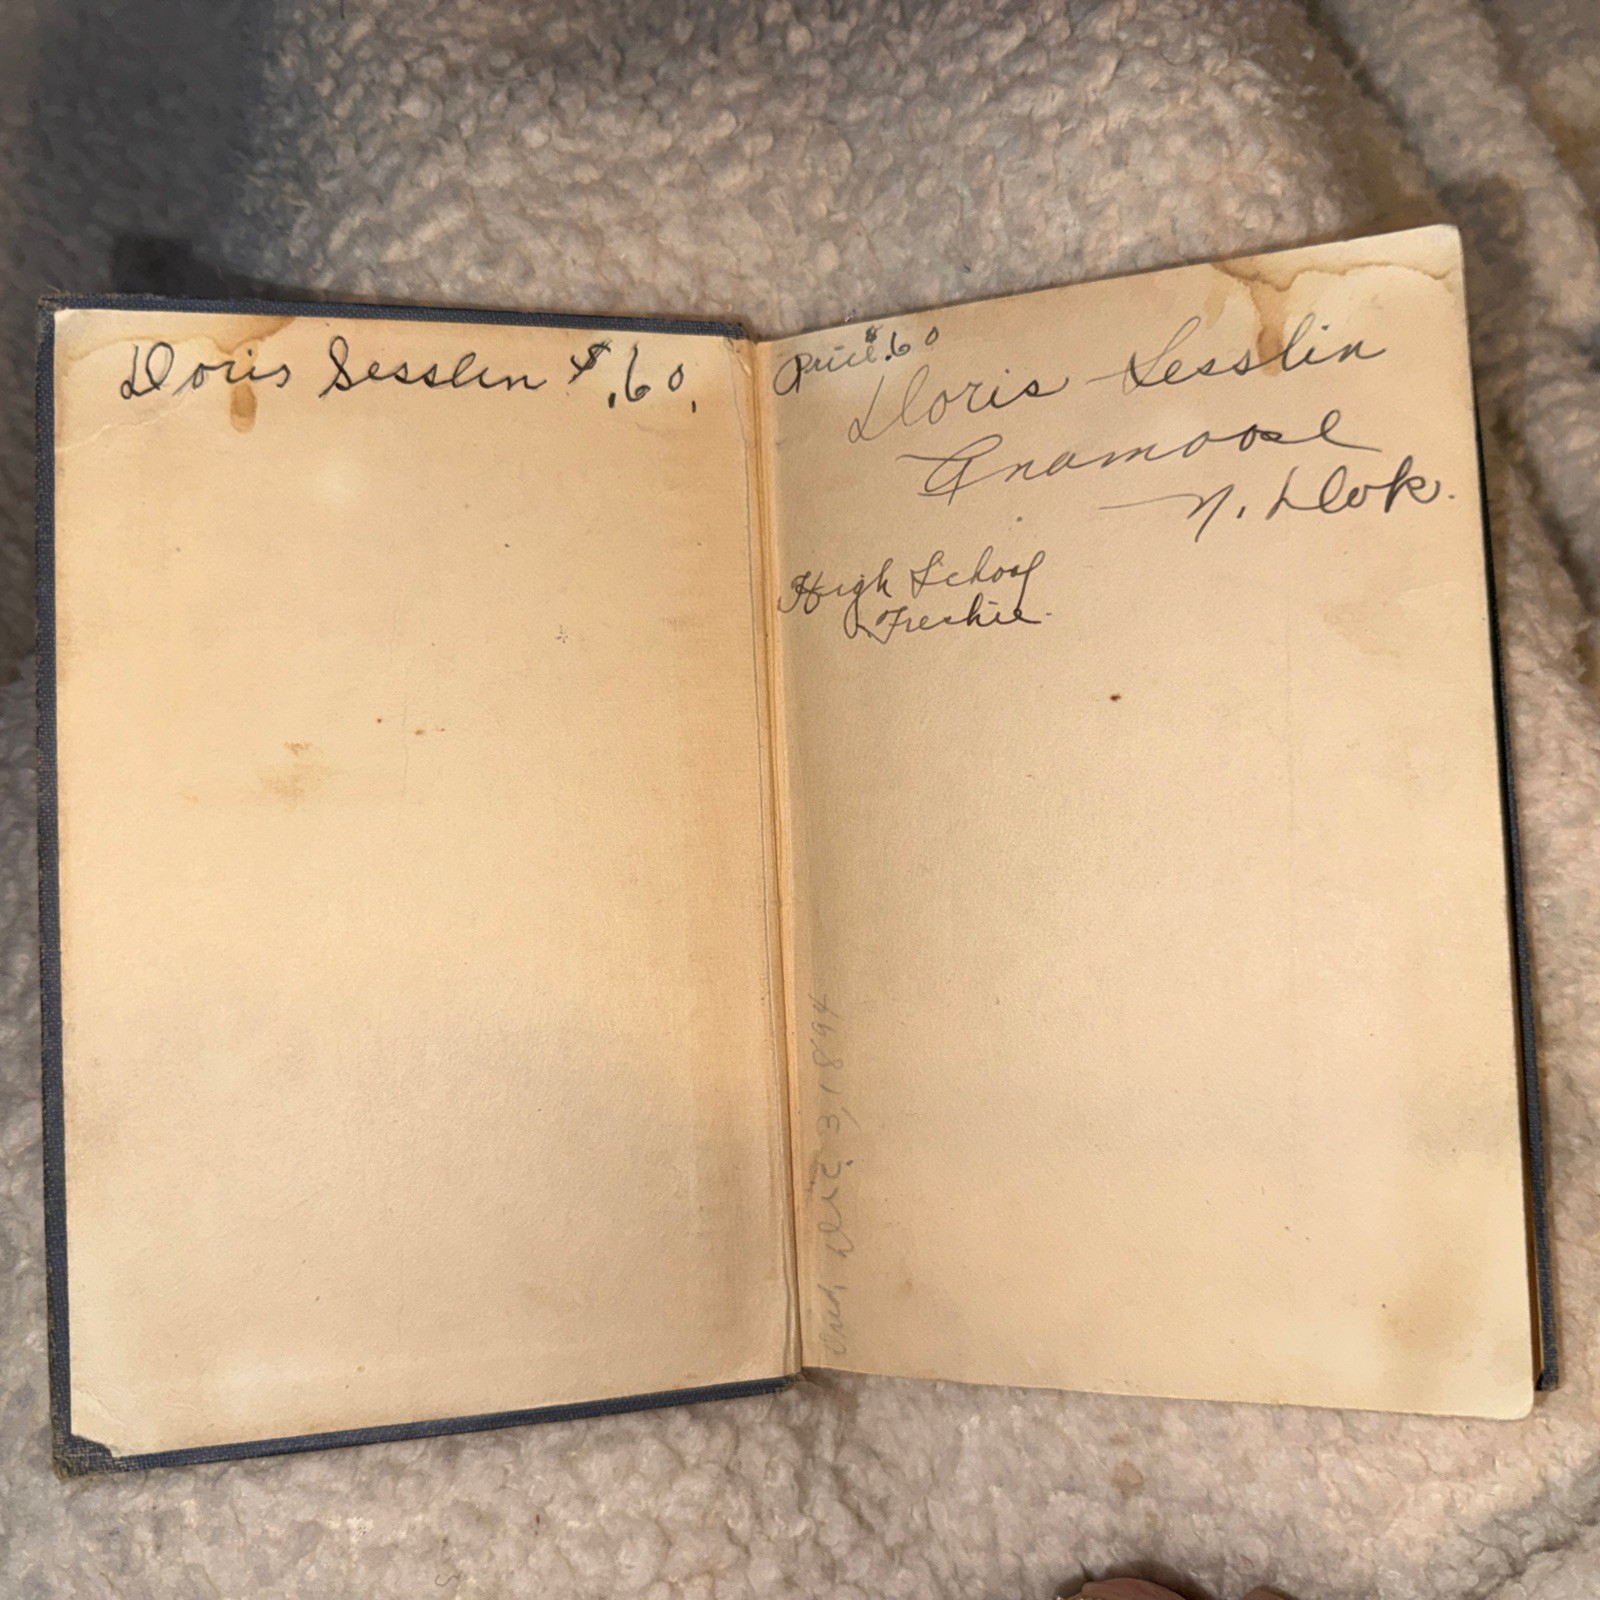 Doris Sesslin $.60.
Price $.60
Doris Sesslin
Anamoose
N. Dak.
High School
Freshie.
Died Dec. 3, 1894